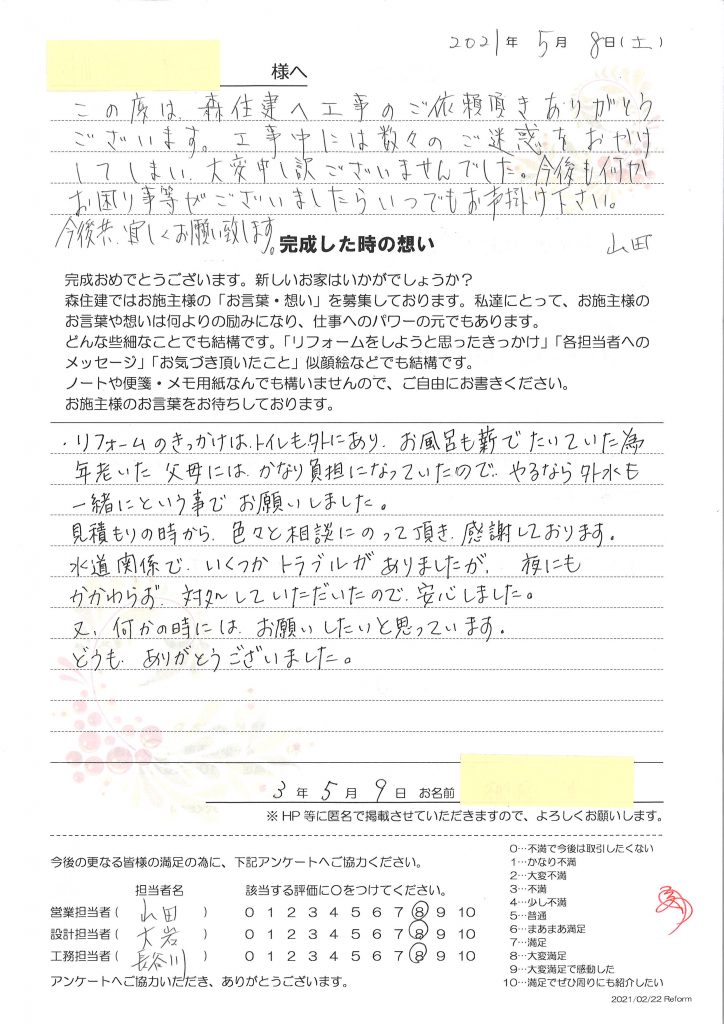 2021年 5月 8日(土)
様へ
この度は、森住建へ工事のご依頼頂きありがとう
ございます。工事中には数々のご迷惑をおかけ
してしまい、大変申し訳ございませんでした。今後も何か
お困り事等がございましたらいつでもお声掛け下さい。
今後共、宜しくお願い致します。
完成した時の想い
山田
完成おめでとうございます。新しいお家はいかがでしょうか?
森住建ではお施主様の「お言葉・想い」を募集しております。私達にとって、お施主様の
お言葉や想いは何よりの励みになり、仕事へのパワーの元でもあります。
どんな些細なことでも結構です。「リフォームをしようと思ったきっかけ」「各担当者への
メッセージ」「お気づき頂いたこと」似顔絵などでも結構です。
ノートや便箋・メモ用紙なんでも構いませんので、ご自由にお書きください。
お施主様のお言葉をお待ちしております。
・リフォームのきっかけは、トイレも外にあり、お風呂も薪でたいていた為
年老いた父母には、かなり負担になっていたので、やるなら外水も
一緒にという事でお願いしました。
見積もりの時から、色々と相談にのって頂き、感謝しております。
水道関係で、いくつかトラブルがありましたが、夜にも
かかわらず、対処していただいたので、安心しました。
又、何かの時には、お願いしたいと思っています。
どうも、ありがとうございました。
3年 5月 9日 お名前
※HP等に匿名で掲載させていただきますので、よろしくお願いします。
今後の更なる皆様の満足の為に、下記アンケートへご協力ください。
担当者名 該当する評価に○をつけてください。
営業担当者( 山田 ) 0 1 2 3 4 5 6 7 8 9 10
設計担当者( 大岩 ) 0 1 2 3 4 5 6 7 8 9 10
工務担当者( 長谷川 ) 0 1 2 3 4 5 6 7 8 9 10
アンケートへご協力いただき、ありがとうございます。
0…不満で今後は取引したくない
1…かなり不満
2…大変不満
3…不満
4…少し不満
5…普通
6…まあまあ満足
7…満足
8…大変満足
9…大変満足で感動した
10…満足でぜひ周りにも紹介したい
2021/02/22 Reform